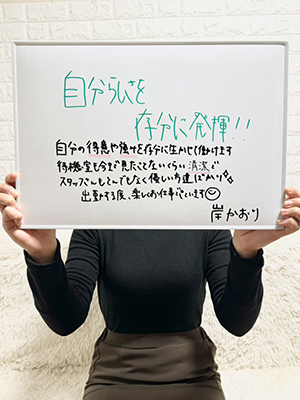 自分らしさを
存分に発揮!!
自分の得意や強みを存分に生かせて働けます
待機室も今まで見たことないくらい清潔で
スタッフさんもとんでもなく優しい方達ばかり✨
出勤する度、楽しくお仕事しています☺
岸かおり